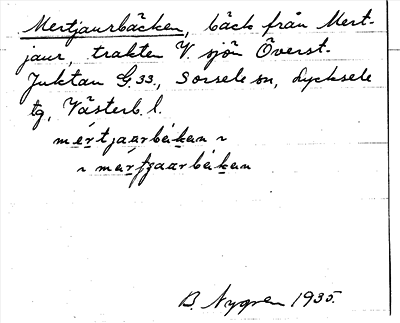 Mertjaurbäcken, bäck från Mert-
jaur, trakten V. sjön Överst-
Juktan G. 33, Sorsele sn, Lycksele
tg, Västerb. l.
mértjaarbäkan ~
~ märtjaarbäkan
B. Nygren 1935.